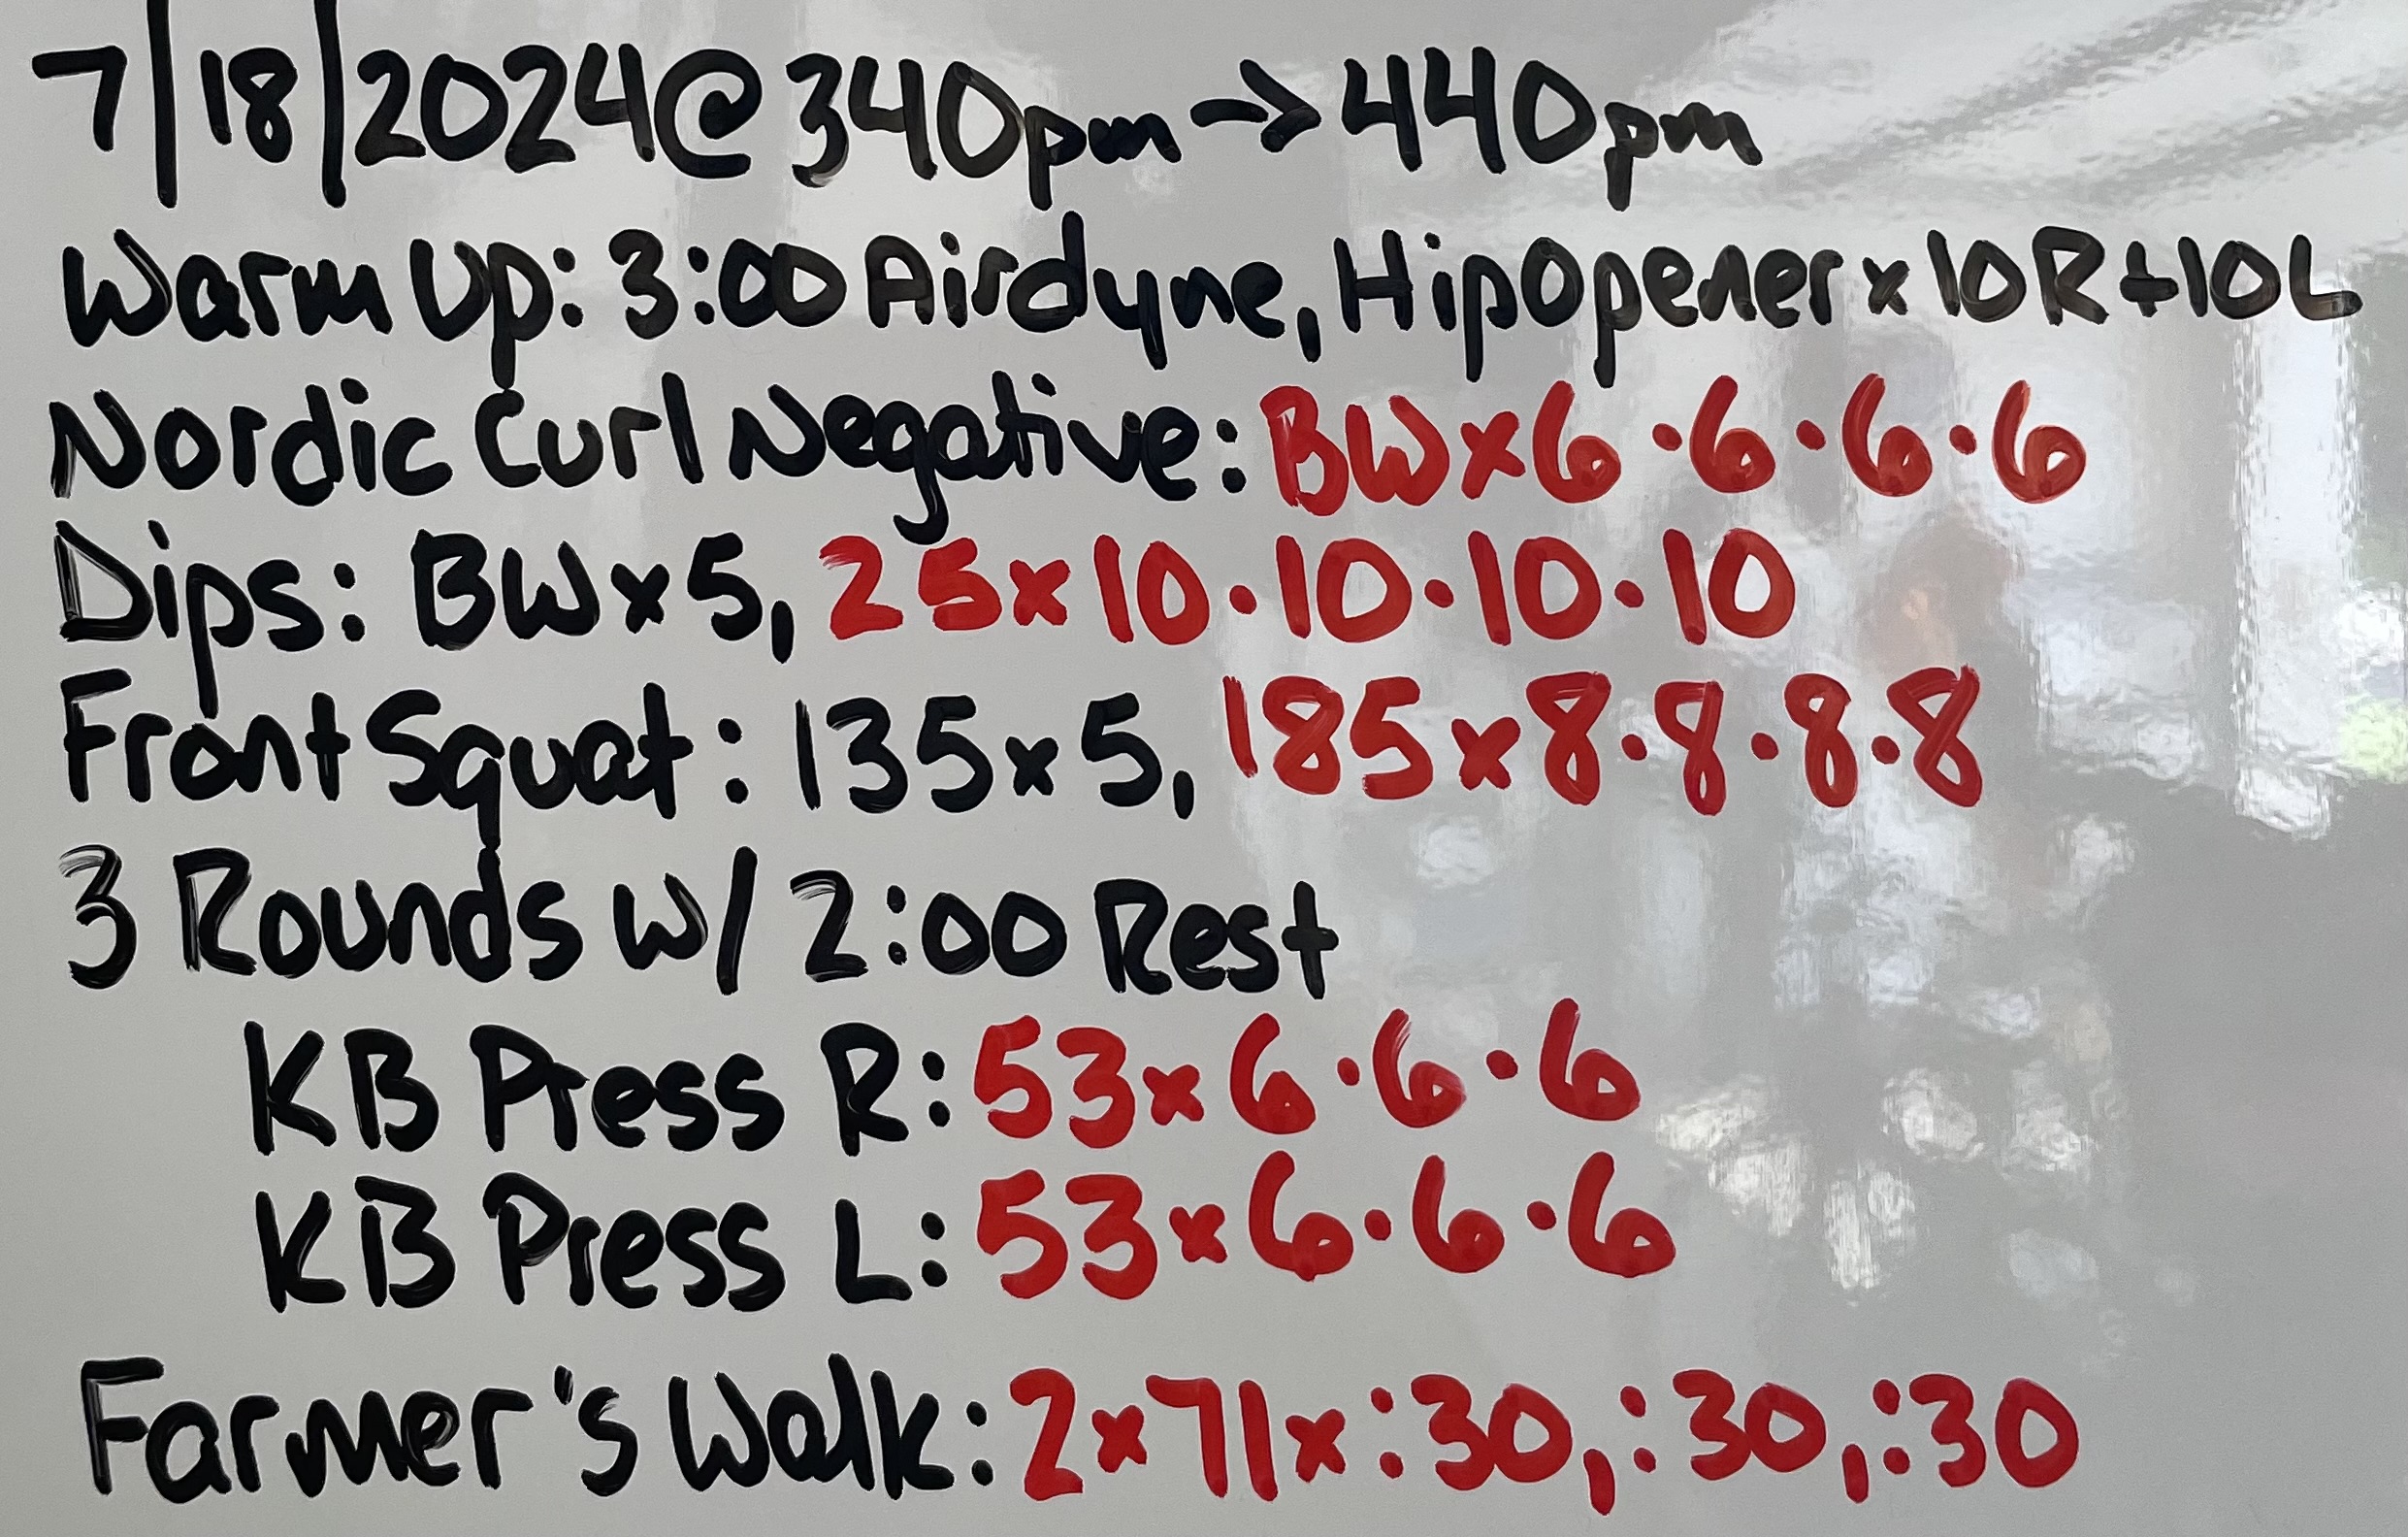 7/18/2024@340pm→440pm
Warm Up: 3:00 Airdyne, Hip Opener x 10R+10L
Nordic Curl Negative: BW x 6·6·6·6
Dips: BW x 5, 25 x 10·10·10·10
Front Squat: 135 x 5, 185 x 8·8·8·8
3 Rounds w/ 2:00 Rest
KB Press R: 53 x 6·6·6
KB Press L: 53 x 6·6·6
Farmer's Walk: 2 x 71 x :30, :30, :30